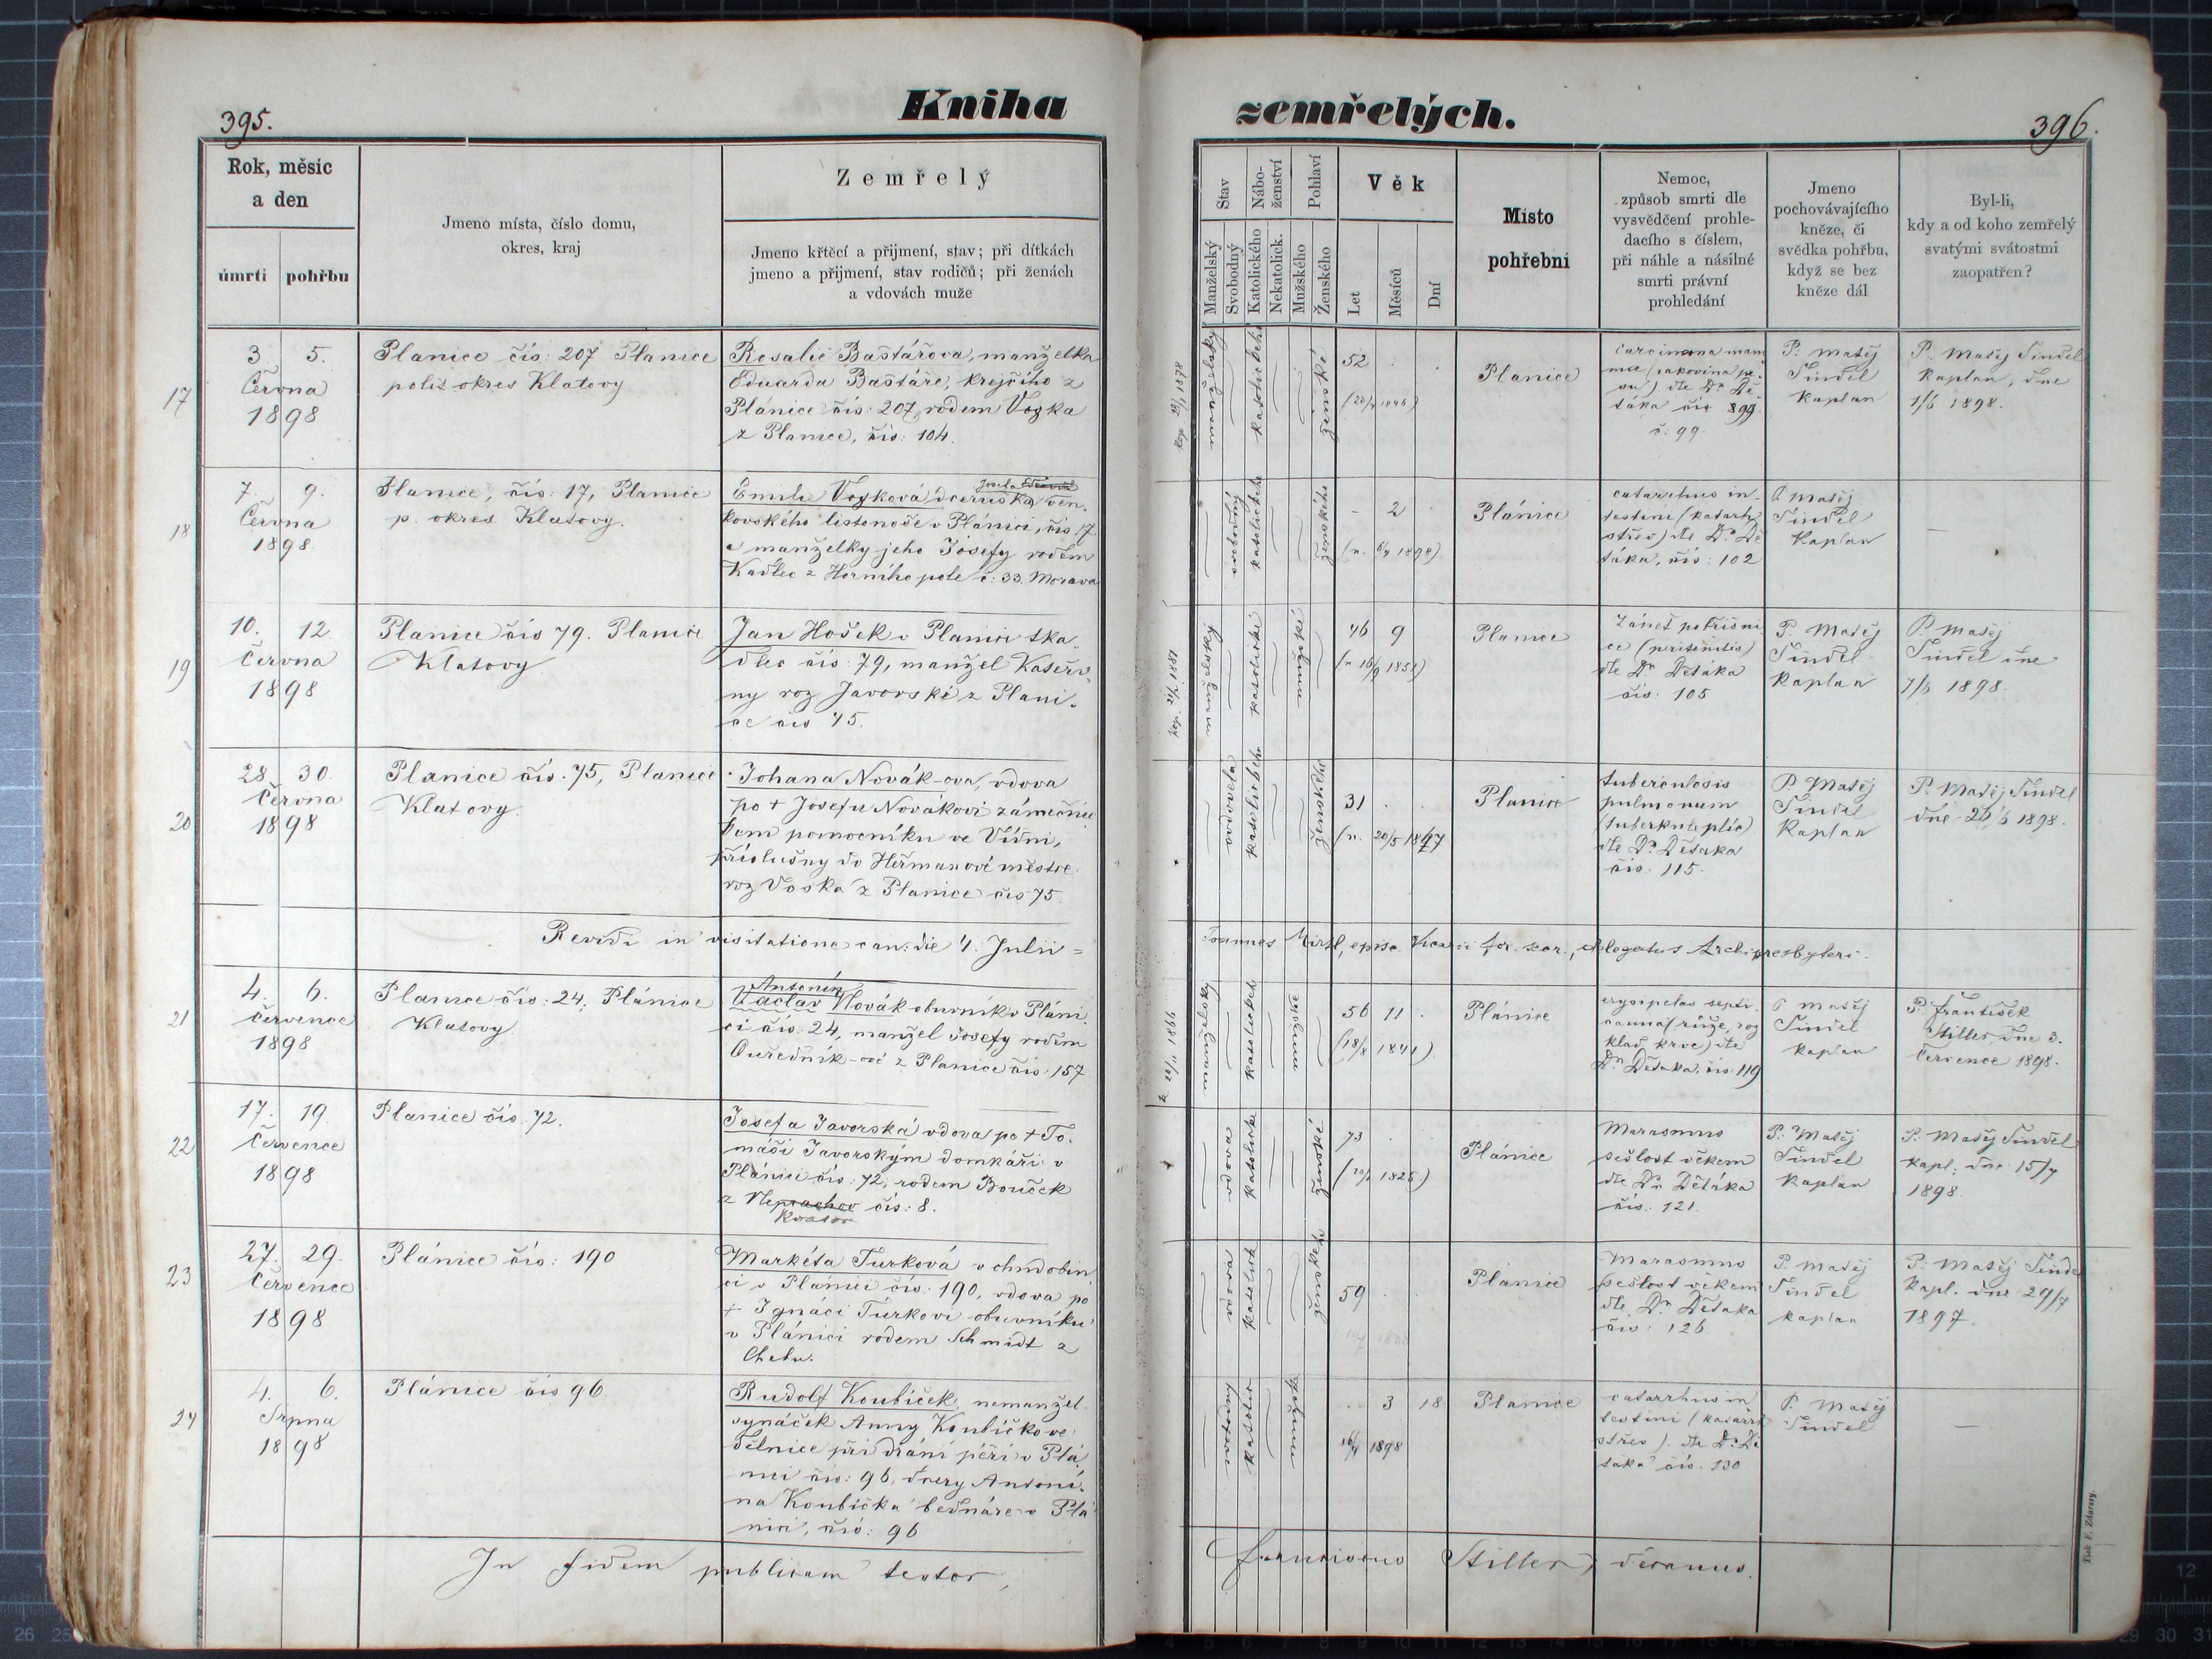 395.
Kniha
Rok, měsíc
a den
úmrtí
pohřbu
Jmeno místa, číslo domu,
okres, kraj
Zemřelý
Jmeno křtěcí a přijmení, stav; při dítkách
jmeno a přijmení, stav rodičů; při ženách
a vdovách muže
17
3. 5.
Června
1898
Planice čís: 207 Planice
polit okres Klatovy
Rosalie Baštářova, manželka
Eduarda Baštáře, krejčího z
Plánice čís: 207, rodem Voska
z Planice, čís: 104.
18
7. 9.
Června
1898
Planice, čís: 17, Planice
p. okres Klatovy.
Josefa
Emilie Vosková, dceruška ven-
kovského listonoše v Plánici, čís 17
a manželky jeho Josefy rodem
Kadlec z Horního pole č: 33. Morava
19
10. 12.
Června
1898
Planice čís 79. Planice
Klatovy
Jan Hošek v Planici tka-
dlec čís: 79, manžel Kateři-
ny roz Javorské z Plani-
ce čís 45.
20
28. 30.
Června
1898
Planice čís. 75, Planice
Klatovy.
Johana Novák-ova, vdova
po + Josefu Novákovi zámečnic
kem pomocníku ve Vídni,
příslušny do Heřmanově městce
roz Voska z Planice čís 75.
Revidi in visitatione can: die 4. Julii =
21
4. 6.
července
1898
Planice čís: 24, Plánice
Klatovy
Antonín
Václav Novák obuvník v Pláni-
ci čís. 24, manžel Josefy rodem
Ouředník-ové z Planice čís: 157
22
17. 19.
Července
1898
Planice čís. 72.
Josefa Javorská vdova po + To-
máši Javorským domkáři v
Plánici čís: 72, rodem Bouček
z Neprachov čís: 8.
23
27. 29.
Července
1898
Plánice čís: 190
Markéta Turková v chudobin
ci v Plánici čís: 190, vdova po
+ Ignaci Turkovi obuvníku
v Plánici rodem Schmidt z
Chebu.
24
4. 6.
Srpna
1898
Plánice čís 96
Rudolf Koubíček, nemanžel.
synáček Anny Koubíčkove
dělnice při draní péří v Plá-
nici čís: 96, dcery Antoní-
na Koubíčka bednáře v Plá-
nici, čís: 96
In fidem publicam testor,
zemřelých.
396.
Stav
Manželský
Svobodný
Nábo-
ženství
Katolického
Nekatolick.
Pohlaví
Mužského
Ženského
Věk
Let
Měsíců
Dní
Místo
pohřební
Nemoc,
způsob smrti dle
vysvědčení prohle-
dacího s číslem,
při náhle a násilné
smrti právní
prohledání
Jmeno
pochovávajícího
kněze, či
svědka pohřbu,
když se bez
kněze dál
Byl-li,
kdy a od koho zemřelý
svatými svátostmi
zaopatřen?
manželskou
katolického
ženské
52
Planice
carcinoma mam
mae (rakovina pr-
su) dle Dr. Dě-
táka čís 899
č. 99.
P. Matěj
Šindel
Kaplan
P. Matěj Šindel
Kaplan, dne
1/6 1898.
svobodný
katolického
ženského
- 2
Plánice
catarrhus in-
testini (katarh
střev) dle Dr. Dě
táka, čís: 102
P. Matěj
Šindel
Kaplan
—
manželský
katolické
mužské
46 9
Planice
Zánět pobřišni
ce (peritonitis)
dle Dr. Dětáka
čís: 105
P. Matěj
Šindel
Kaplan
P. Matěj
Šindel dne
7/6 1898.
vdova
katolického
ženského
31
Planice
tuberculosis
pulmonum
(tuberkule plic)
dle Dr. Dětaka
čís: 115.
P. Matěj
Šindel
Kaplan
P. Matěj Šindel
dne 26/6 1898.
Joannes
delegatus Archipresbyteri.
manželský
katolické
mužské
56 11
(18/8 1841)
Plánice
erysipelas septi
(růže, roz
klad krve) dle
Dr. Dětaka, čís 119
P. Matěj
Šindel
kaplan
P. František
Stiller, dne 3.
Července 1898.
vdova
katolické
ženské
73
Plánice
Marasmus
sešlost věkem
dle Dr. Dětáka
čís. 121.
P. Matěj
Šindel
Kaplan
P. Matěj Šindel
kapl. dne 15/7
1898.
vdova
ženské
59
Plánice
Marasmus
sešlost věkem
dle Dr. Dětaka
čís: 126
P. Matěj
Šindel
kaplan
P. Matěj Šindel
Kapl. dne 29/7
1897.
svobodný
mužské
3 18
1898
Planice
catarrhus in
testini (katarrh
střev). dle Dr. Dě
táka čís. 130
P. Matěj
Šindel
—
Franciscus Stiller, decanus.